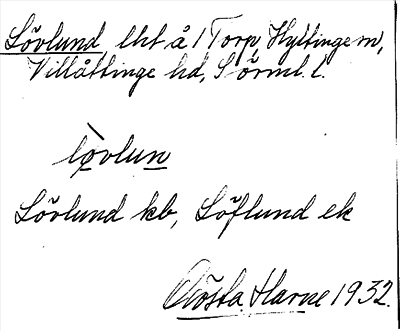 Lövlund, lht å 1 Torp, Hyltinge sn,
Villåttinge hd, Sörml. l.
lòvlun
Lövlund kb, Löflund ek
Gösta Harne 1932.